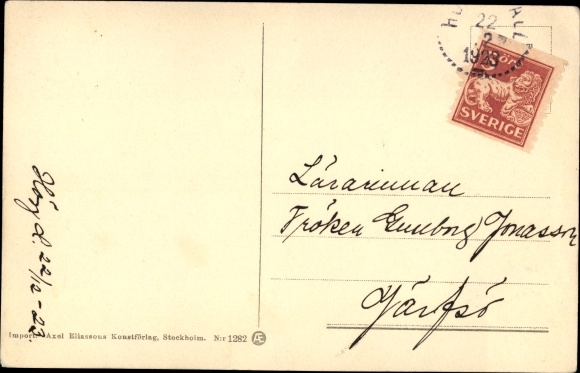 22
1923
SVERIGE
Lärarinnan
Fröken Gunborg Jonasson
Järfsö
22/12-23.
Import: Axel Eliassons Konstförlag, Stockholm. N:r 1282 Æ